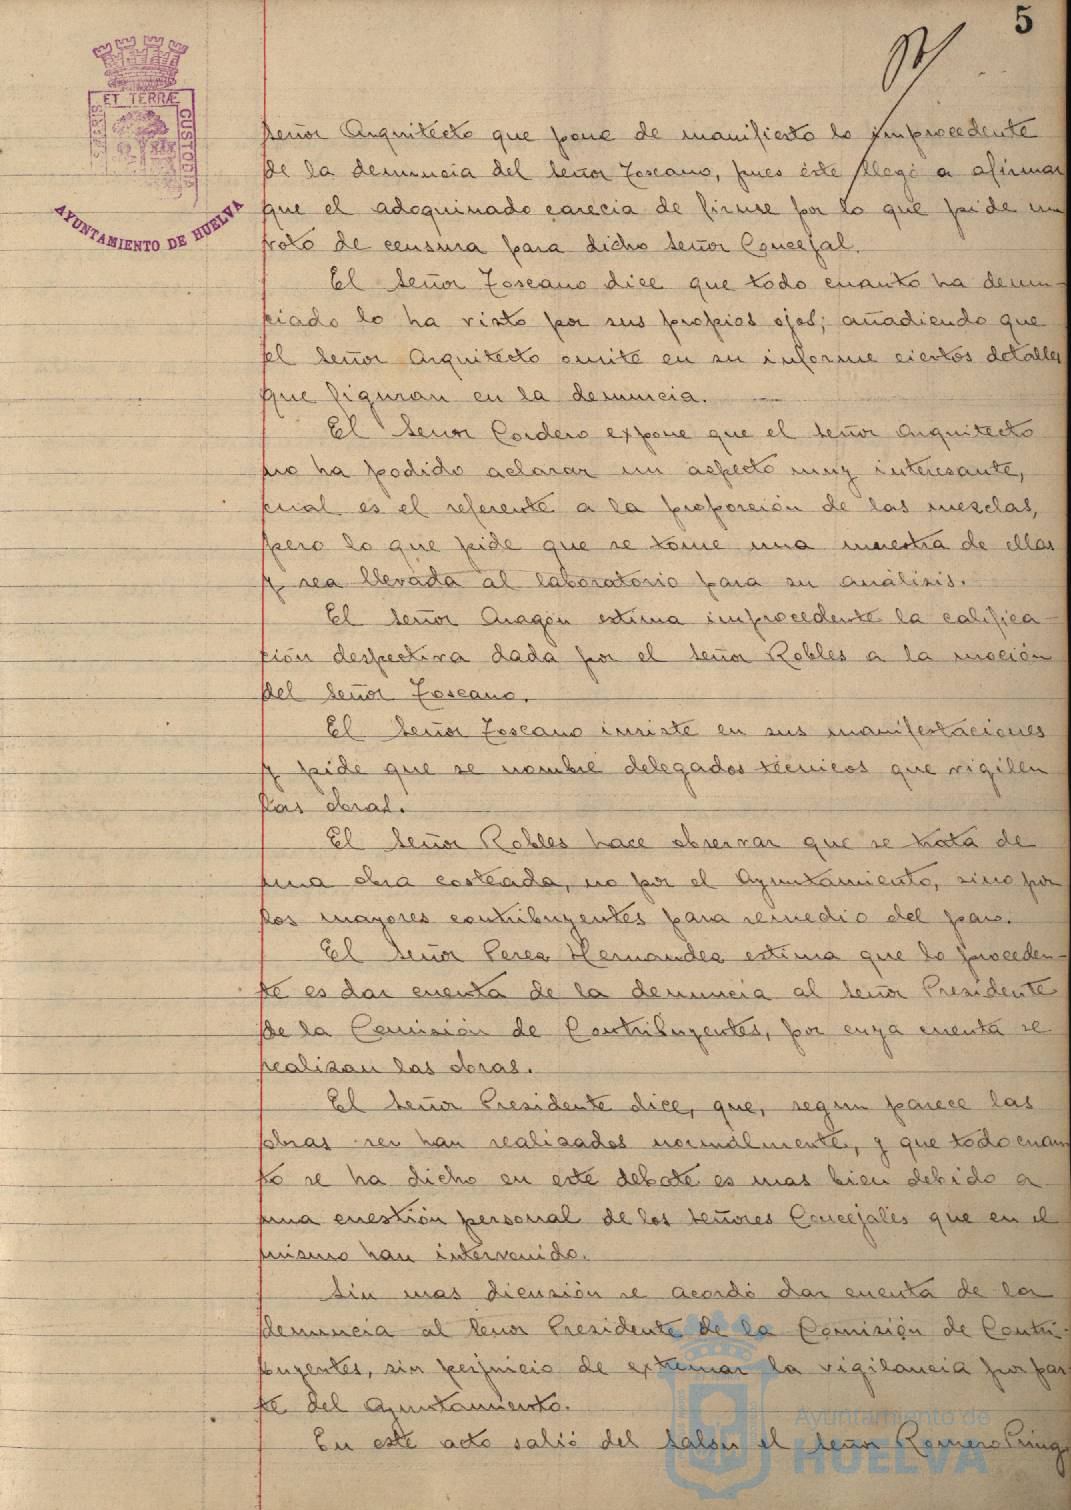 5
ET TERRÆ
CUSTODIA
AYUNTAMIENTO DE HUELVA
señor Arquitecto que pone de manifiesto lo improcedente
de la denuncia del señor Toscano, pues éste llegó a afirmar
que el adoquinado carecia de firme por lo que pide un
voto de censura para dicho señor Concejal.
El señor Toscano dice que todo cuanto ha denun-
ciado lo ha visto por sus propios ojos; añadiendo que
el señor Arquitecto omite en su informe ciertos detalles
que figuran en la denuncia.
El señor Cordero expone que el señor Arquitecto
no ha podido aclarar un aspecto muy interesante,
cual es el referente a la proporción de las mezclas,
pero lo que pide que se tome una muestra de ellas
y sea llevada al laboratorio para su análisis.
El señor Aragón estima improcedente la califica-
ción despectiva dada por el señor Robles a la moción
del señor Toscano.
El señor Toscano insiste en sus manifestaciones
y pide que se nombre delegados técnicos que vigilen
las obras.
El señor Robles hace observar que se trata de
una obra costeada, no por el Ayuntamiento, sino por
los mayores contribuyentes para remedio del paro.
El señor Perez Hernandez estima que lo proceden-
te es dar cuenta de la denuncia al señor Presidente
de la Comisión de Contribuyentes, por cuya cuenta se
realizan las obras.
El señor Presidente dice, que, segun parece las
obras se han realizados normalmente, y que todo cuan-
to se ha dicho en este debate es mas bien debido a
una cuestión personal de los señores Concejales que en el
mismo han intervenido.
Sin mas dicusión se acordó dar cuenta de la
denuncia al señor Presidente de la Comisión de Contri-
buyentes, sin perjuicio de extremar la vigilancia por par-
te del Ayuntamiento.
En este acto salió del salón el señor Romero
Ayuntamiento de
HUELVA